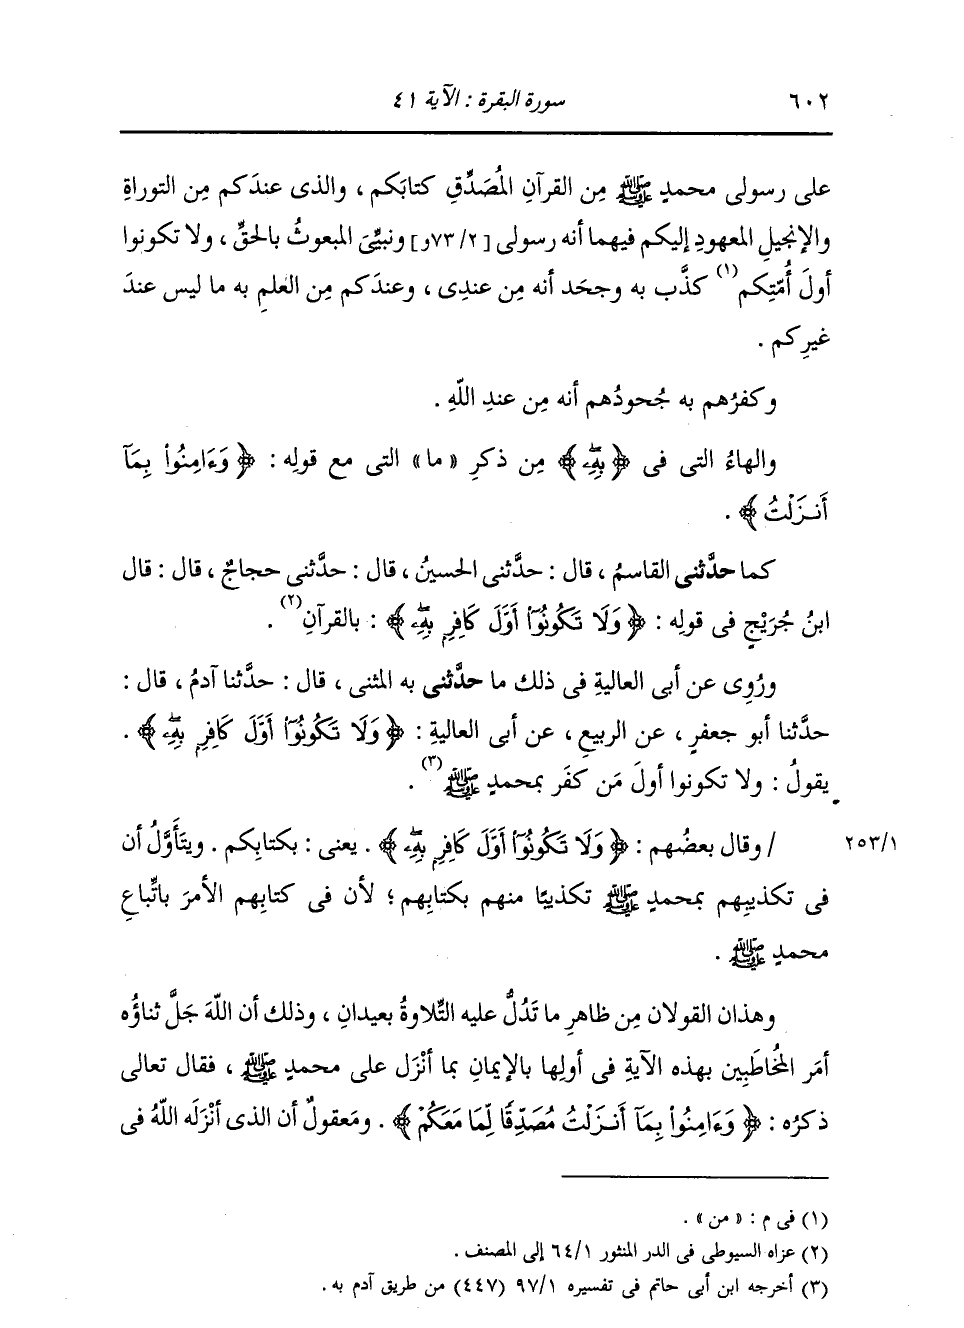 ٦٠٢ سورة البقرة : الآية ٤١
على رسولى محمدٍ ﷺ مِن القرآنِ المُصَدِّقِ كتابَكم ، والذى عندَكم مِن التوراةِ
والإنجيلِ المعهودِ إليكم فيهما أنه رسولى [٧٣/٢و] ونبيِّىَ المبعوثُ بالحقِّ ، ولا تكونوا
أولَ أُمَّتِكم(١) كذَّب به وجحَد أنه مِن عندِى ، وعندَكم مِن العلمِ به ما ليس عندَ
غيرِكم .
وكفرُهم به جُحودُهم أنه مِن عندِ اللهِ .
والهاءُ التى فى ﴿ بِهِۦ ﴾ مِن ذكرِ « ما » التى مع قولِه : ﴿ وَءَامِنُوا۟ بِمَآ
أَنزَلْتُ ﴾ .
كما حدَّثنى القاسمُ ، قال : حدَّثنى الحسينُ ، قال : حدَّثنى حجاجٌ ، قال : قال
ابنُ جُرَيْجٍ فى قولِه : ﴿ وَلَا تَكُونُوٓا۟ أَوَّلَ كَافِرٍۭ بِهِۦ ﴾ : بالقرآنِ(٢) .
ورُوِى عن أبى العاليةِ فى ذلك ما حدَّثنى به المثنى ، قال : حدَّثنا آدمُ ، قال :
حدَّثنا أبو جعفرٍ ، عن الربيعِ ، عن أبى العاليةِ : ﴿ وَلَا تَكُونُوٓا۟ أَوَّلَ كَافِرٍۭ بِهِۦ ﴾ .
يقولُ : ولا تكونوا أولَ مَن كفَر بمحمدٍ ﷺ(٣) .
٢٥٣/١ / وقال بعضُهم : ﴿ وَلَا تَكُونُوٓا۟ أَوَّلَ كَافِرٍۭ بِهِۦ ﴾ . يعنى : بكتابِكم . ويتَأوَّلُ أن
فى تكذيبِهم بمحمدٍ ﷺ تكذيبًا منهم بكتابِهم ؛ لأن فى كتابِهم الأمرَ باتِّباعِ
محمدٍ ﷺ .
وهذان القولان مِن ظاهرِ ما تَدُلُّ عليه التِّلاوةُ بعيدانِ ، وذلك أن اللهَ جَلَّ ثناؤُه
أمَر المُخاطَبِين بهذه الآيةِ فى أولِها بالإيمانِ بما أنْزَل على محمدٍ ﷺ ، فقال تعالى
ذكرُه : ﴿ وَءَامِنُوا۟ بِمَآ أَنزَلْتُ مُصَدِّقًا لِّمَا مَعَكُمْ ﴾ . ومَعقولٌ أن الذى أنْزَلَه اللهُ فى
(١) فى م : « من » .
(٢) عزاه السيوطى فى الدر المنثور ٦٤/١ إلى المصنف .
(٣) أخرجه ابن أبى حاتم فى تفسيره ٩٧/١ (٤٤٧) من طريق آدم به .